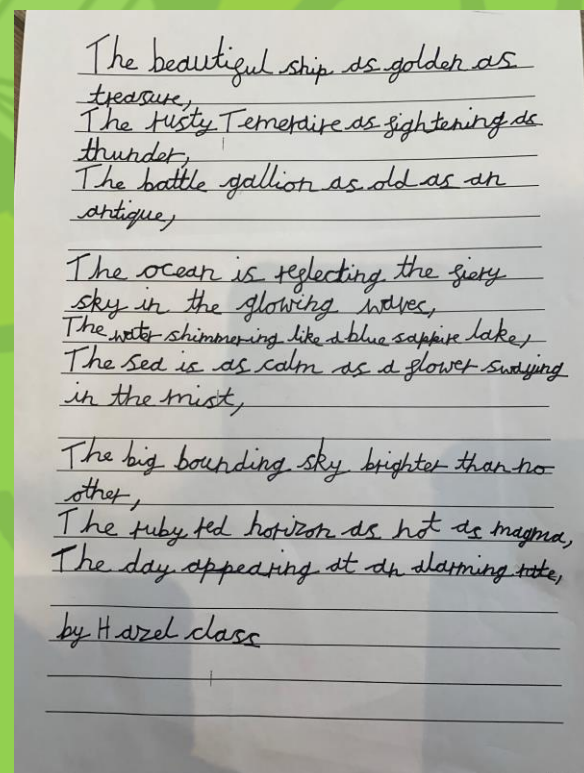 The beautiful ship as golden as
treasure,
The rusty Temeraire as fightening as
thunder,
The battle gallion as old as an
antique,
The ocean is reflecting the fiery
sky in the glowing waves,
The water shimmering like a blue sappire lake,
The sea is as calm as a flower swaying
in the mist,
The big bounding sky brighter than no
other,
The ruby red horizon as hot as magma,
The day appearing at an alarming rate,
by Hazel class